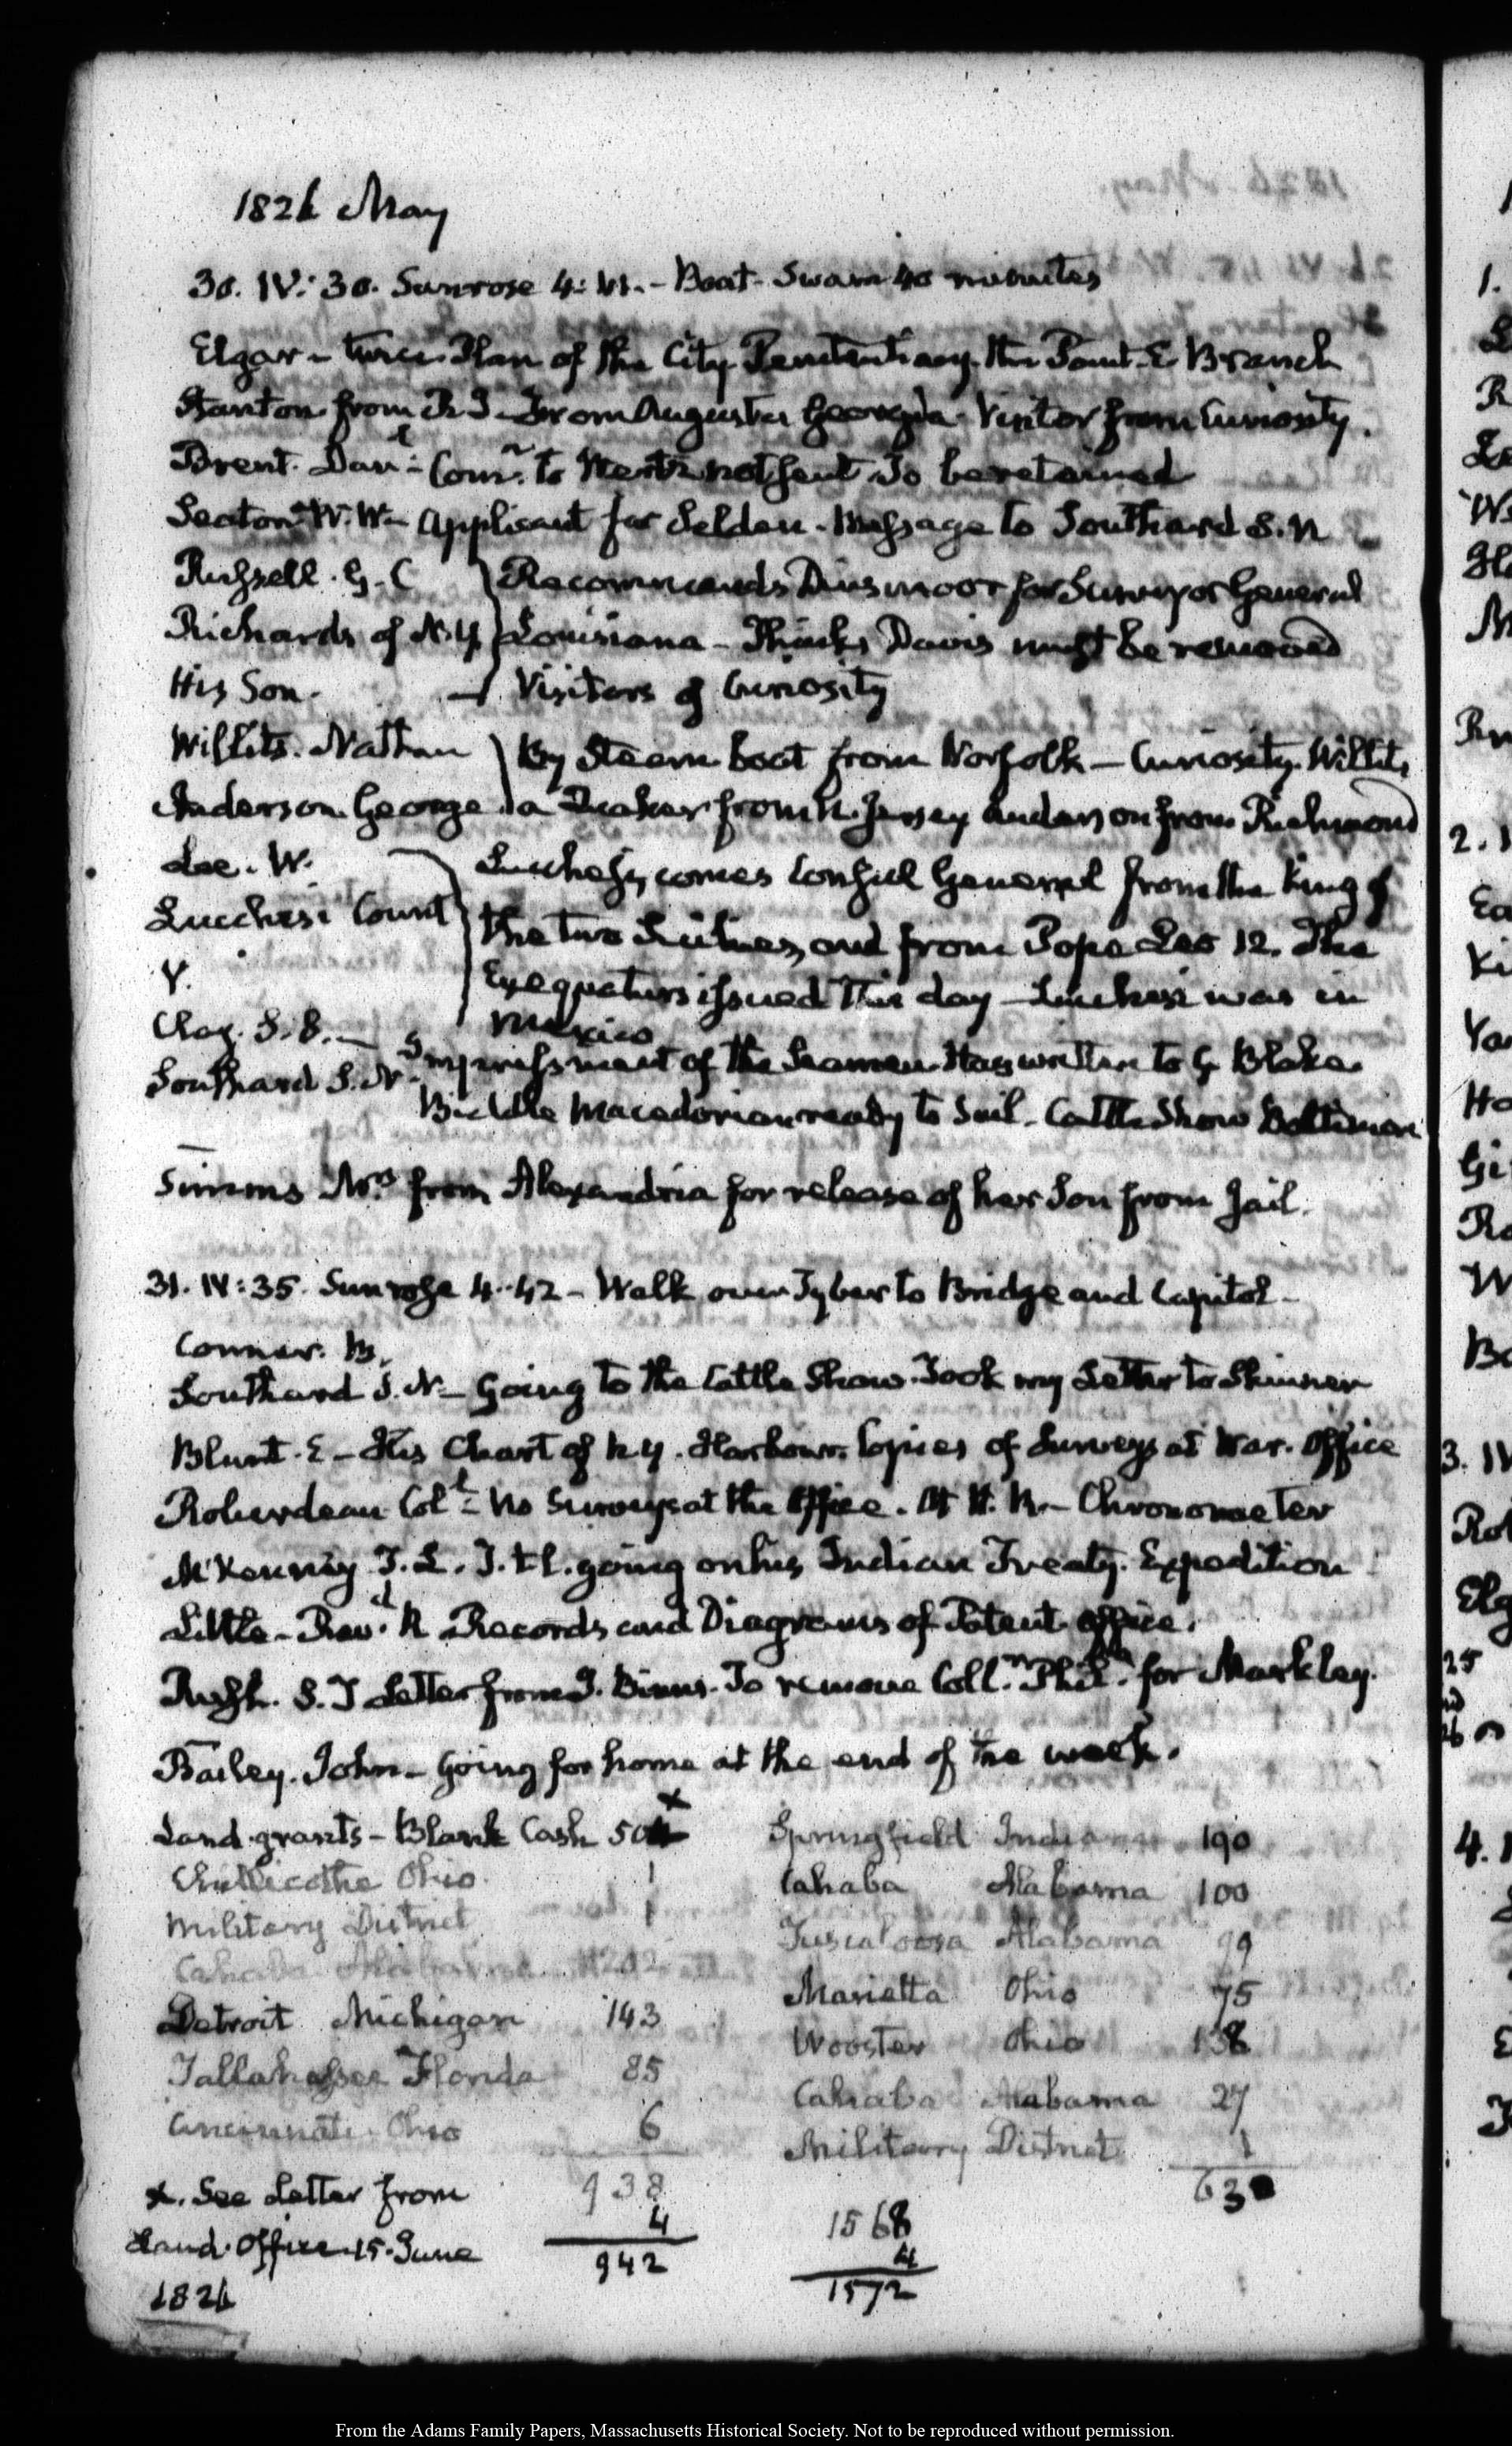 1826 May
30. IV: 30. Sunrose 4: 41. - Boat - Swam 40 minutes
Elgar - twice Plan of the City Penitentiary. the Point. E Branch
Stanton from R I - From Augusta Georgia. Visitor from Curiosity.
Brent. Danl - Comn. to not sent. To be retained
Seaton W. W - Applicant for Selden. Message to Southard S. N
Russell. G. C } Recommends Dinsmoor for Surveyor General
Richards of N. Y } Louisiana - Thinks Davis must be removed
His Son. - } Visitors of Curiosity
Willits. Nathan } By Steam boat from Norfolk - Curiosity. Willits
Anderson. George } a Quaker from N. Jersey Anderson from Richmond
Lee. W. } Lucchesi, comes Consul General from the King of
Lucchesi Count } the two Sicilies, and from Pope Leo 12. The
Y. } Exequaturs issued this day - Lucchesi was in
Mexico
Clay. S. S. -
Southard S. N - Imprisonment of the Seamen. Has written to G. Blake.
Biddle Macedonian ready to Sail. Cattle Show Baltimore
Simms Mrs. from Alexandria for release of her Son from Jail.
31. IV: 35. Sunrose 4. 42 - Walk over Tyber to Bridge and Capitol -
Conner. B.
Southard S. N - Going to the Cattle Show. Took my Letter to Skinner
Blunt. E - His Chart of N. Y. Harbour. Copies of Surveys at War. Office
Roberdeau Colt - No Surveys at the Office. Chronometer
McKenney T. L. going on his Indian Treaty. Expedition
Little - Revd. R Records and Diagrams of Patent office.
Rush. S. T Letter from J. Binns. To remove Colln. Phila. for Markley.
Bailey. John - Going for home at the end of the week.
Land. grants - Blank Cash 504 x Springfield Indiana 190
Chillicothe Ohio 1 Cahaba Alabama 100
Military District 1 Tuscaloosa Alabama 99
Cahaba Alabama 202 Marietta Ohio 75
Detroit Michigan 143 Wooster Ohio 138
Tallahassee Florida 85 Cahaba Alabama 27
Cincinnati Ohio 6 Military District 1
x. See Letter from 938 630
Land. Office 15. June 4 1568
1826 942 4
1572
From the Adams Family Papers, Massachusetts Historical Society. Not to be reproduced without permission.